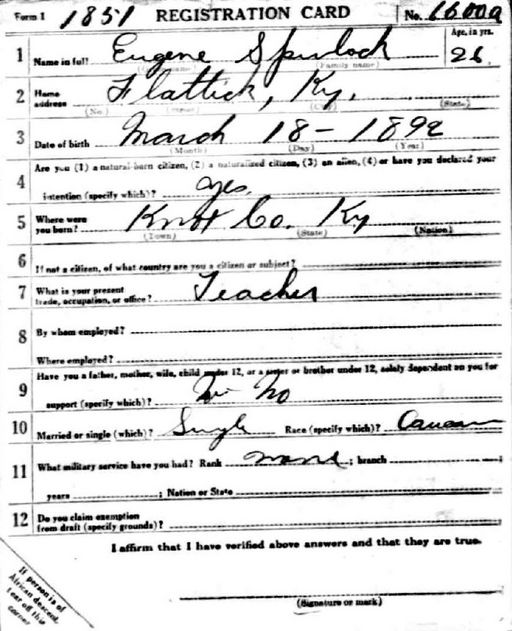 Form 1 1851 REGISTRATION CARD No. 16009
1 Name in full Eugene Spurlock Age, in yrs. 26
(Family name)
2 Home address Flatlick, Ky.
(No.) (Street) (City) (State)
3 Date of birth March 18 - 1892
(Month) (Day) (Year)
4 Are you (1) a natural-born citizen, (2) a naturalized citizen, (3) an alien, (4) or have you declared your
intention (specify which)? yes.
5 Where were you born? Knox Co. Ky
(Town) (State) (Nation)
6 If not a citizen, of what country are you a citizen or subject?
7 What is your present trade, occupation, or office? Teacher
8 By whom employed?
Where employed?
9 Have you a father, mother, wife, child under 12, or a sister or brother under 12, solely dependent on you for
support (specify which)? No
10 Married or single (which)? Single Race (specify which)? Caucasian
11 What military service have you had? Rank none ; branch
years ; Nation or State
12 Do you claim exemption from draft (specify grounds)?
I affirm that I have verified above answers and that they are true.
If person is of
African descent,
tear off this
corner.
(Signature or mark)